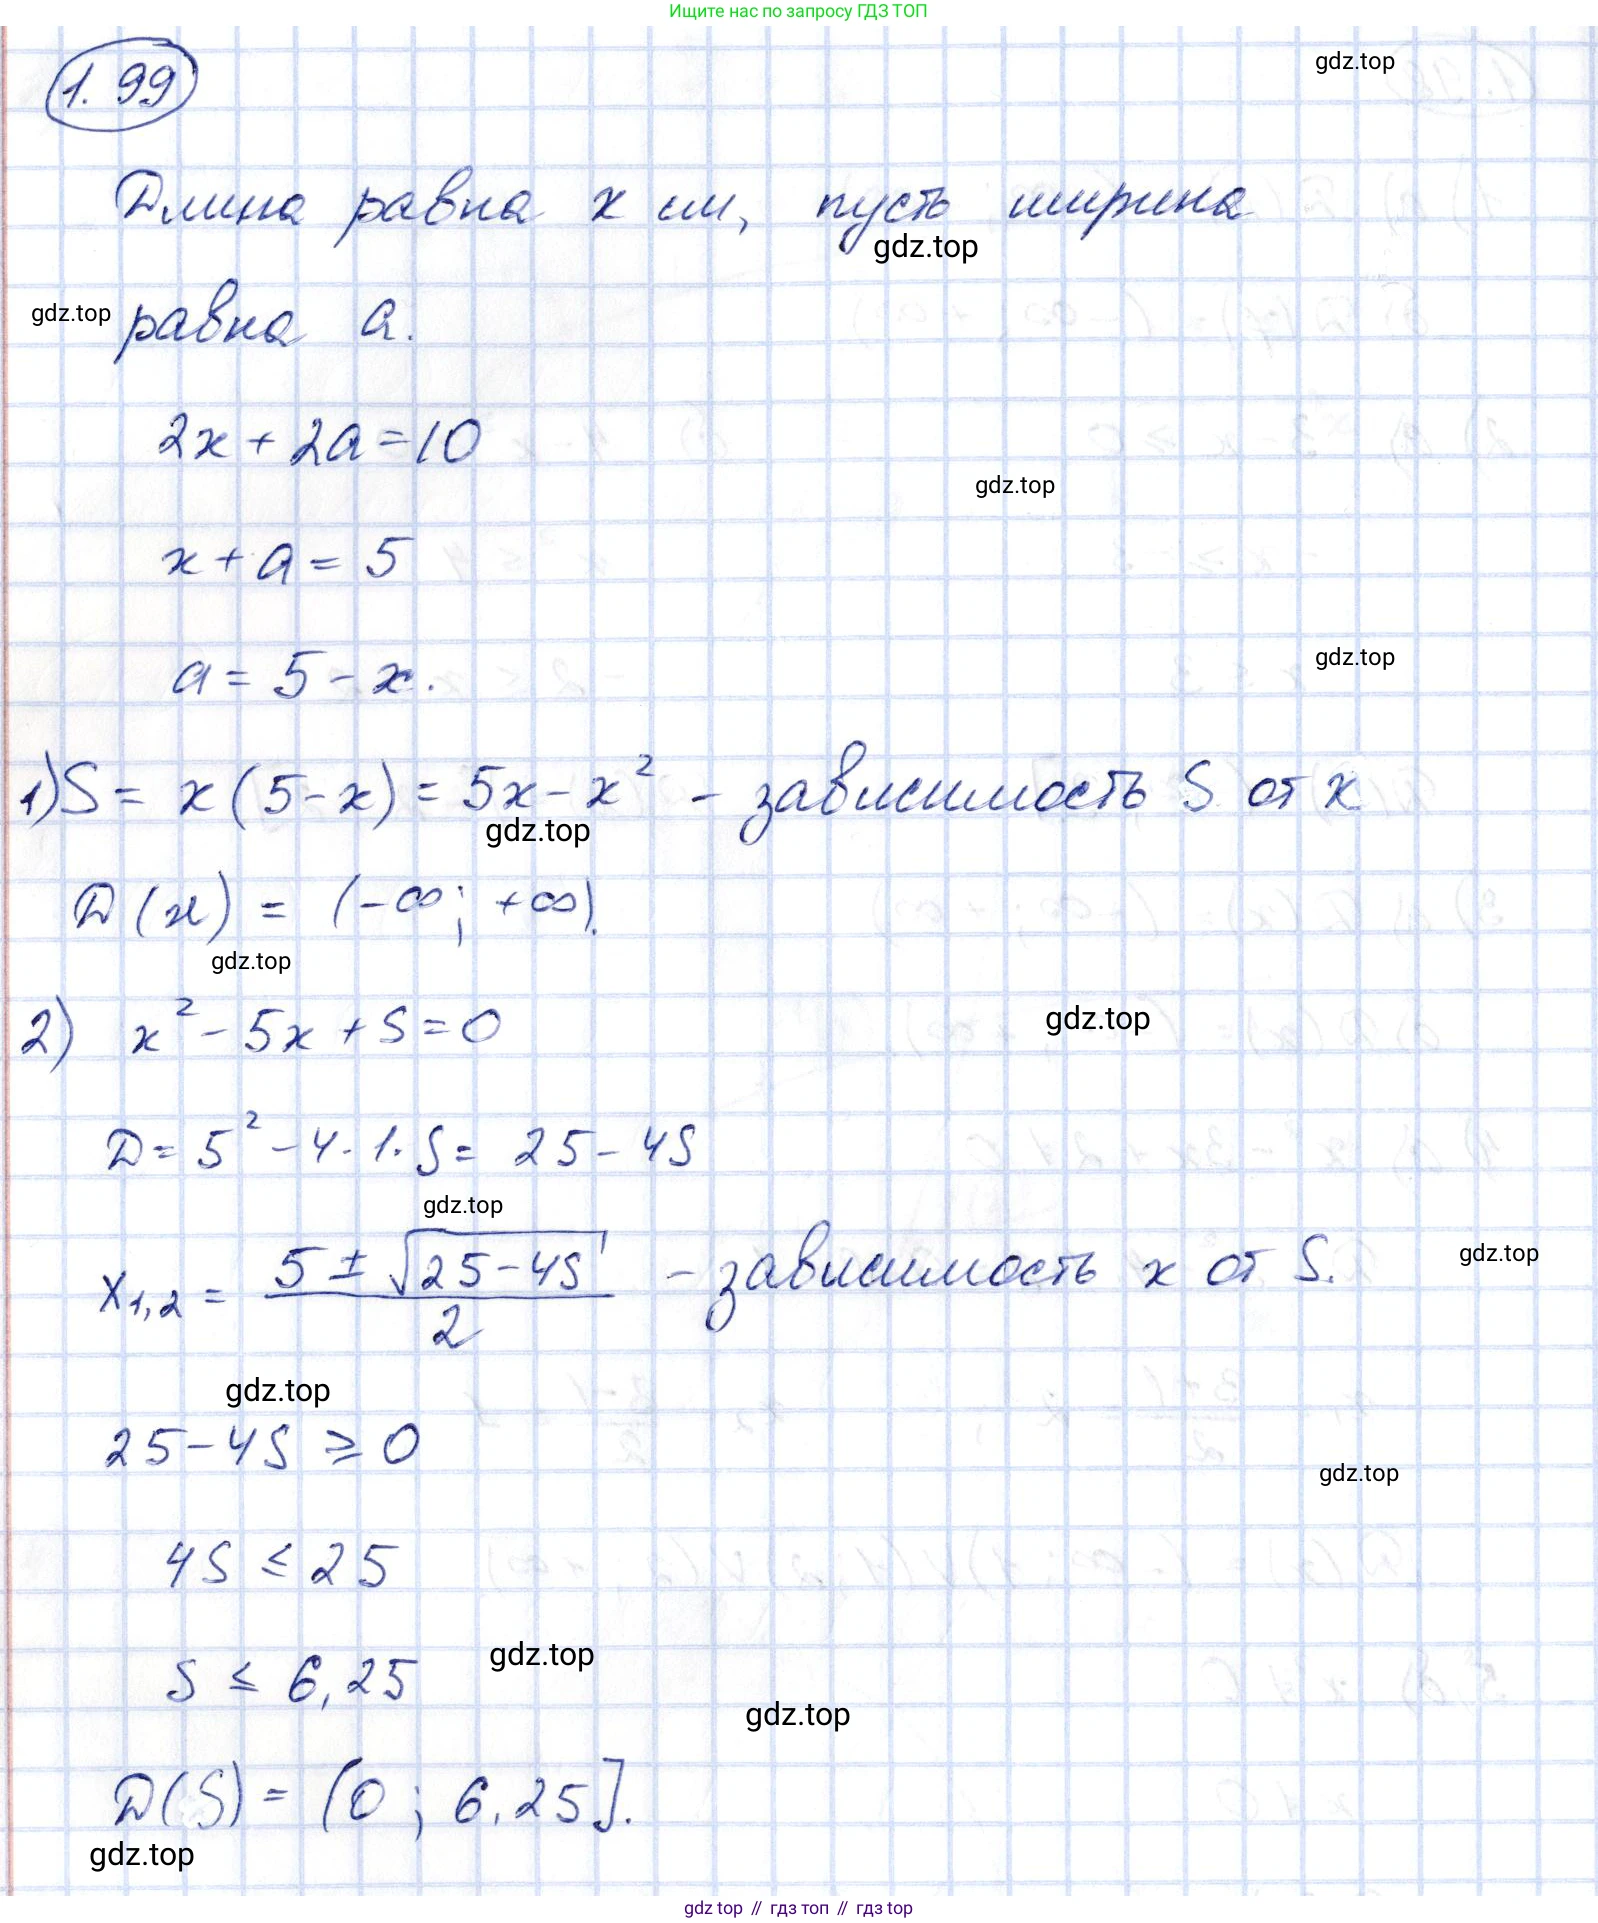 Ищите нас по запросу ГДЗ ТОП
1.99
gdz.top
Длина равна x см, пусть ширина
gdz.top
gdz.top
равна a.
2x + 2a = 10
gdz.top
x + a = 5
a = 5 - x.
gdz.top
1) S = x(5-x) = 5x - x² - зависимость S от x
gdz.top
D(x) = (-∞; +∞).
gdz.top
2) x² - 5x + S = 0
gdz.top
D = 5² - 4·1·S = 25 - 4S
gdz.top
x₁,₂ = (5 ± √(25-4S))/2 - зависимость x от S.
gdz.top
gdz.top
25 - 4S ≥ 0
gdz.top
4S ≤ 25
gdz.top
S ≤ 6,25
gdz.top
D(S) = (0; 6,25].
gdz.top
gdz top // гдз топ // гдз top